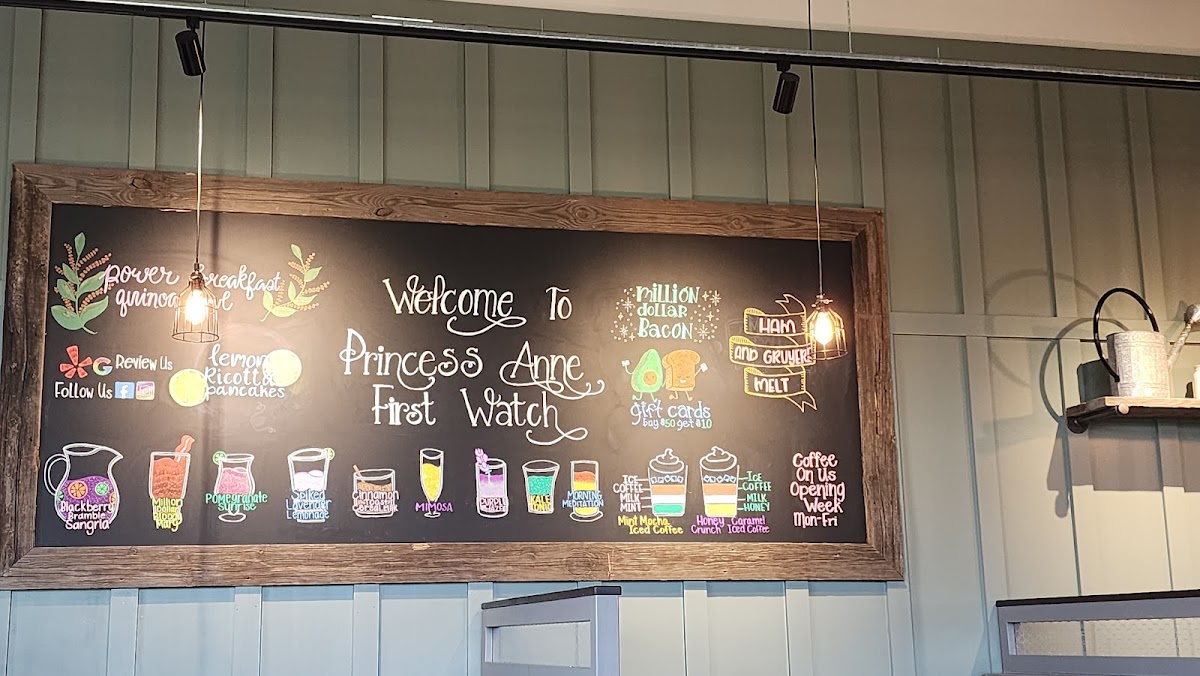 power breakfast
quinoa
Review Us
Follow Us
lemon
Ricotta
pancakes
Welcome To
Princess Anne
First Watch
Million
dollar
Bacon
gift cards
buy $50 get $10
HAM
AND GRUYERE
MELT
Blackberry
Bramble
Sangria
Million
dollar
Bloody
Mary
Pomegranate
Sunrise
Spiked
Lavender
Lemonade
Cinnamon
MIMOSA
KALE
TONIC
MORNING
MEDITATION
ICE
COFFEE
MILK
MINT
Mint Mocha
Iced Coffee
ICE
COFFEE
MILK
HONEY
Honey Caramel
Crunch Iced Coffee
Coffee
On Us
Opening
Week
Mon-Fri